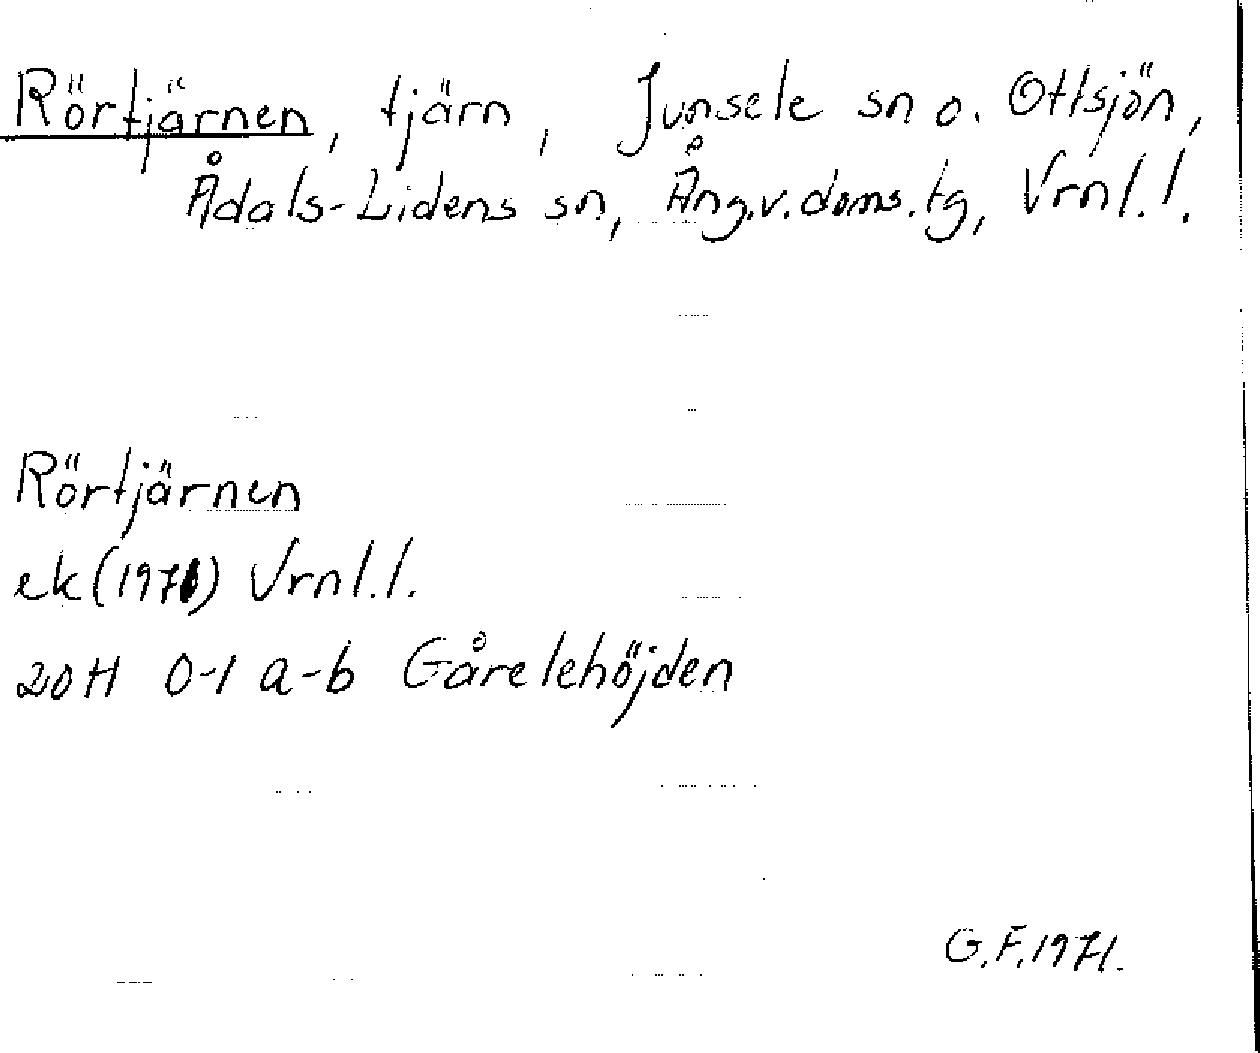 Rörtjärnen, tjärn, Junsele sn o. Ottsjön,
Ådals-Lidens sn, Ång.v.doms.tg, Vrnl.l.
Rörtjärnen
ek (1971) Vrnl.l.
20H 0-1 a-b Gårelehöjden
G.F.1971.